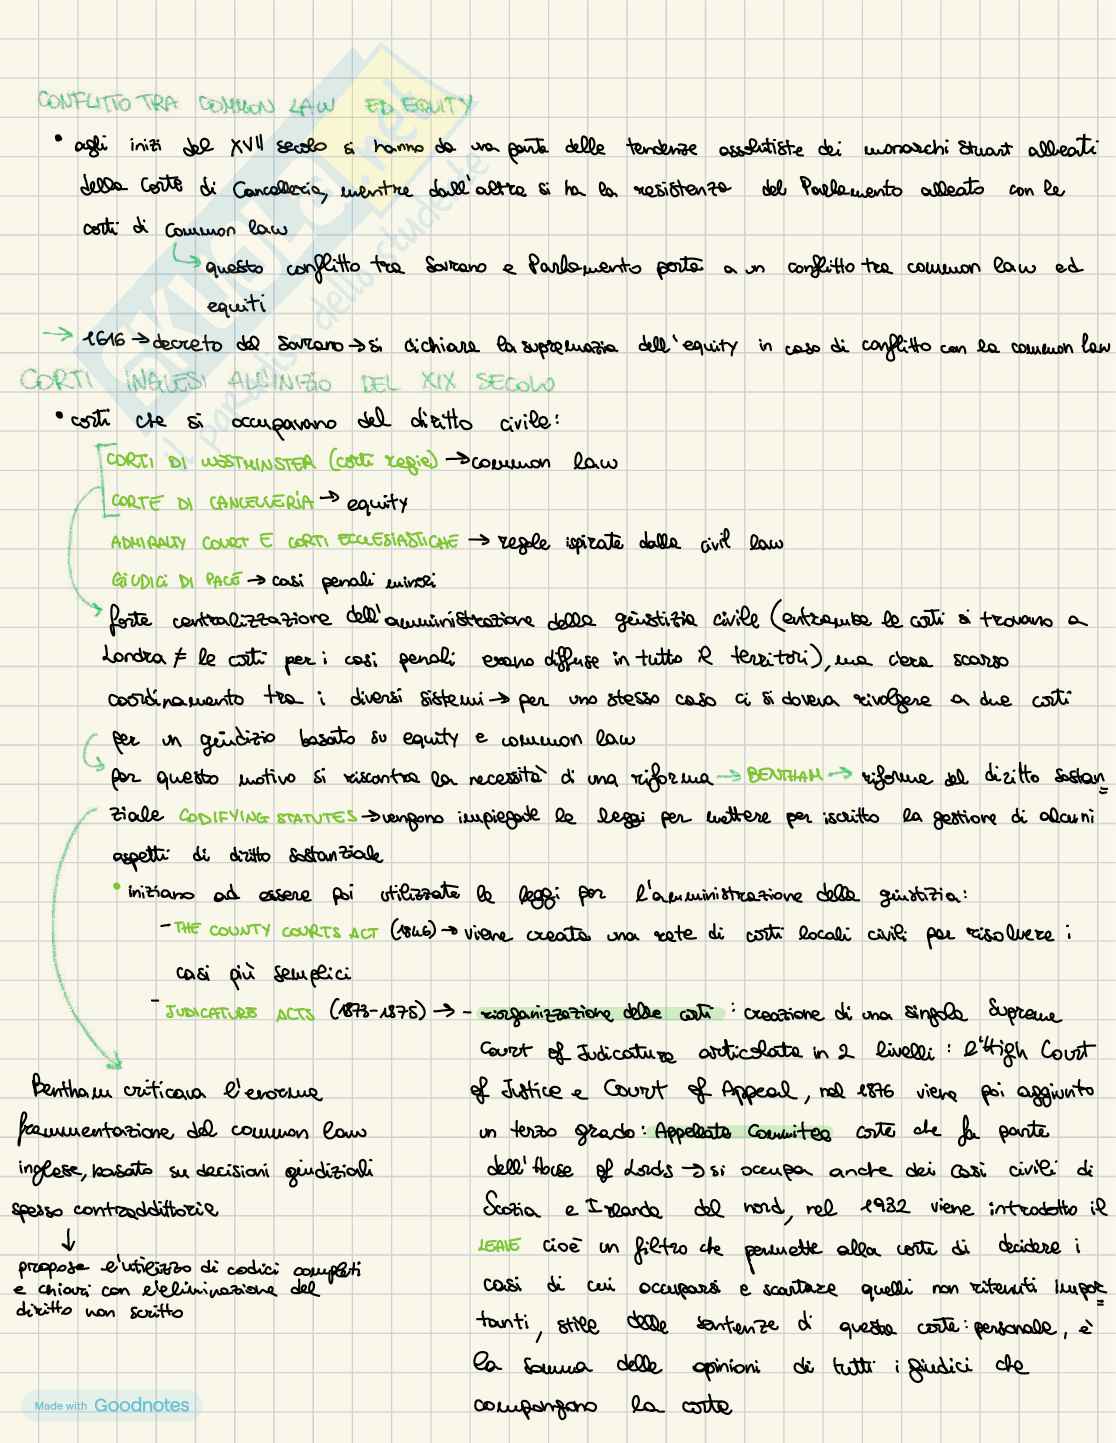 CONFLITTO TRA COMMON LAW ED EQUITY
• agli inizi del XVII secolo si hanno da una parte delle tendenze assolutiste dei monarchi Stuart alleati
della Corte di Cancelleria, mentre dall'altra si ha la resistenza del Parlamento alleato con le
corti di common law
questo conflitto tra Sovrano e Parlamento porta a un conflitto tra common law ed
equiti
→ 1616 → decreto del Sovrano → si dichiara la supremazia dell'equity in caso di conflitto con la common law
CORTI INGLESI ALL'INIZIO DEL XIX SECOLO
• corti che si occupavano del diritto civile:
CORTI DI WESTMINSTER (corti regie) → common law
CORTE DI CANCELLERIA → equity
ADMIRALTY COURT E CORTI ECCLESIASTICHE → regole ispirate dalla civil law
GIUDICI DI PACE → casi penali minori
forte centralizzazione dell'amministrazione della giustizia civile (entrambe le corti si trovano a
Londra ≠ le corti per i casi penali erano diffuse in tutto il territori), ma c'era scarso
coordinamento tra i diversi sistemi → per uno stesso caso ci si doveva rivolgere a due corti
per un giudizio basato su equity e common law
per questo motivo si riscontra la necessità di una riforma → BENTHAM → riforma del diritto sostan
ziale CODIFYING STATUTES → vengono impiegate le leggi per mettere per iscritto la gestione di alcuni
aspetti di diritto sostanziale
• iniziano ad essere poi utilizzate le leggi per l'amministrazione della giustizia:
- THE COUNTY COURTS ACT (1846) → viene creata una rete di corti locali civili per risolvere i
casi più semplici
- JUDICATURE ACTS (1873-1875) → - riorganizzazione delle corti : creazione di una singola Supreme
Court of Judicature articolata in 2 livelli : l'High Court
of Justice e Court of Appeal, nel 1876 viene poi aggiunto
un terzo grado: Appellate Committee corte che fa parte
dell'House of Lords → si occupa anche dei casi civili di
Scozia e Irlanda del nord, nel 1932 viene introdotto il
LEAVE cioè un filtro che permette alla corte di decidere i
casi di cui occuparsi e scartare quelli non ritenuti impor
tanti, stile delle sentenze di questa corte: personale, è
la somma delle opinioni di tutti i giudici che
compongono la corte
Bentham criticava l'enorme
frammentazione del common law
inglese, basato su decisioni giudiziali
spesso contraddittorie
↓
propose l'utilizzo di codici completi
e chiari con l'eliminazione del
diritto non scritto
Made with Goodnotes
SKUOLA.net
il paradiso dello studente